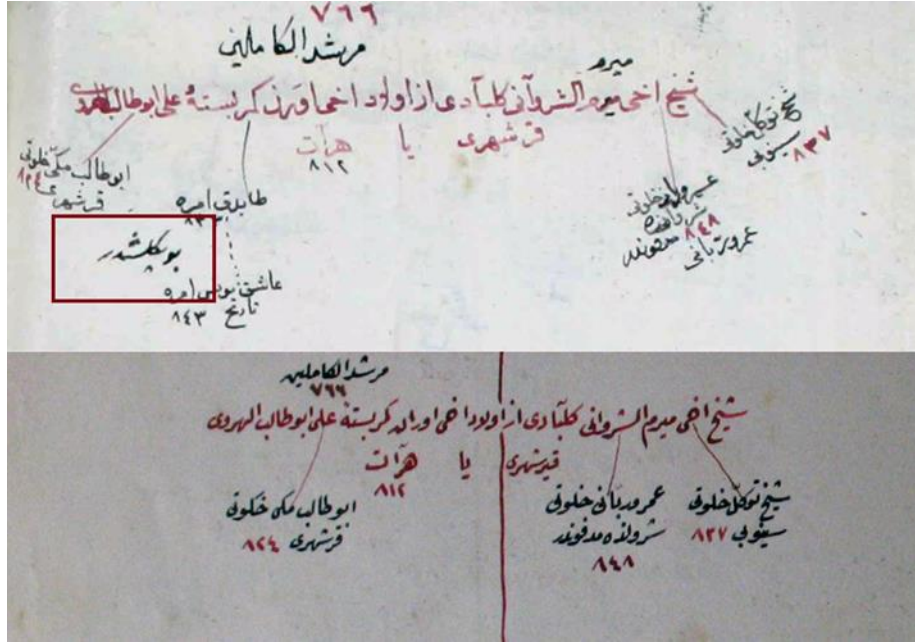 ٧٦٦
مرشد الكاملين
ميرم
شيخ اخى ميرم الشروآنى كلبآدى از اولاد اخى اورن كربستهٔ على ابو طالب
قرشهرى يا هرآت
٨١٢
شيخ توكل خلوتى
سينوبى ٨٣٧
خلوتى
٨٤٨ مدفوندر
عمر ربانى
ابو طالب مكى خلوتى
٨٢٤
قرشهرى
طابدق امره
بو يكلشدر
عاشق يونس امره
تاريخ ٨٤٣
مرشد الكاملين
٧٦٦
شيخ اخى ميرم الشروانى كلبآدى از اولاد اخى اوران كربستهٔ على ابو طالب الهروى
قيرشهرى يا هرآت
٨١٢
شيخ توكل خلوتى
سينوبى ٨٣٧
عمر ربانى خلوتى
شروانده مدفوندر
٨٤٨
ابو طالب مكى خلوتى
قرشهرى ٨٢٤